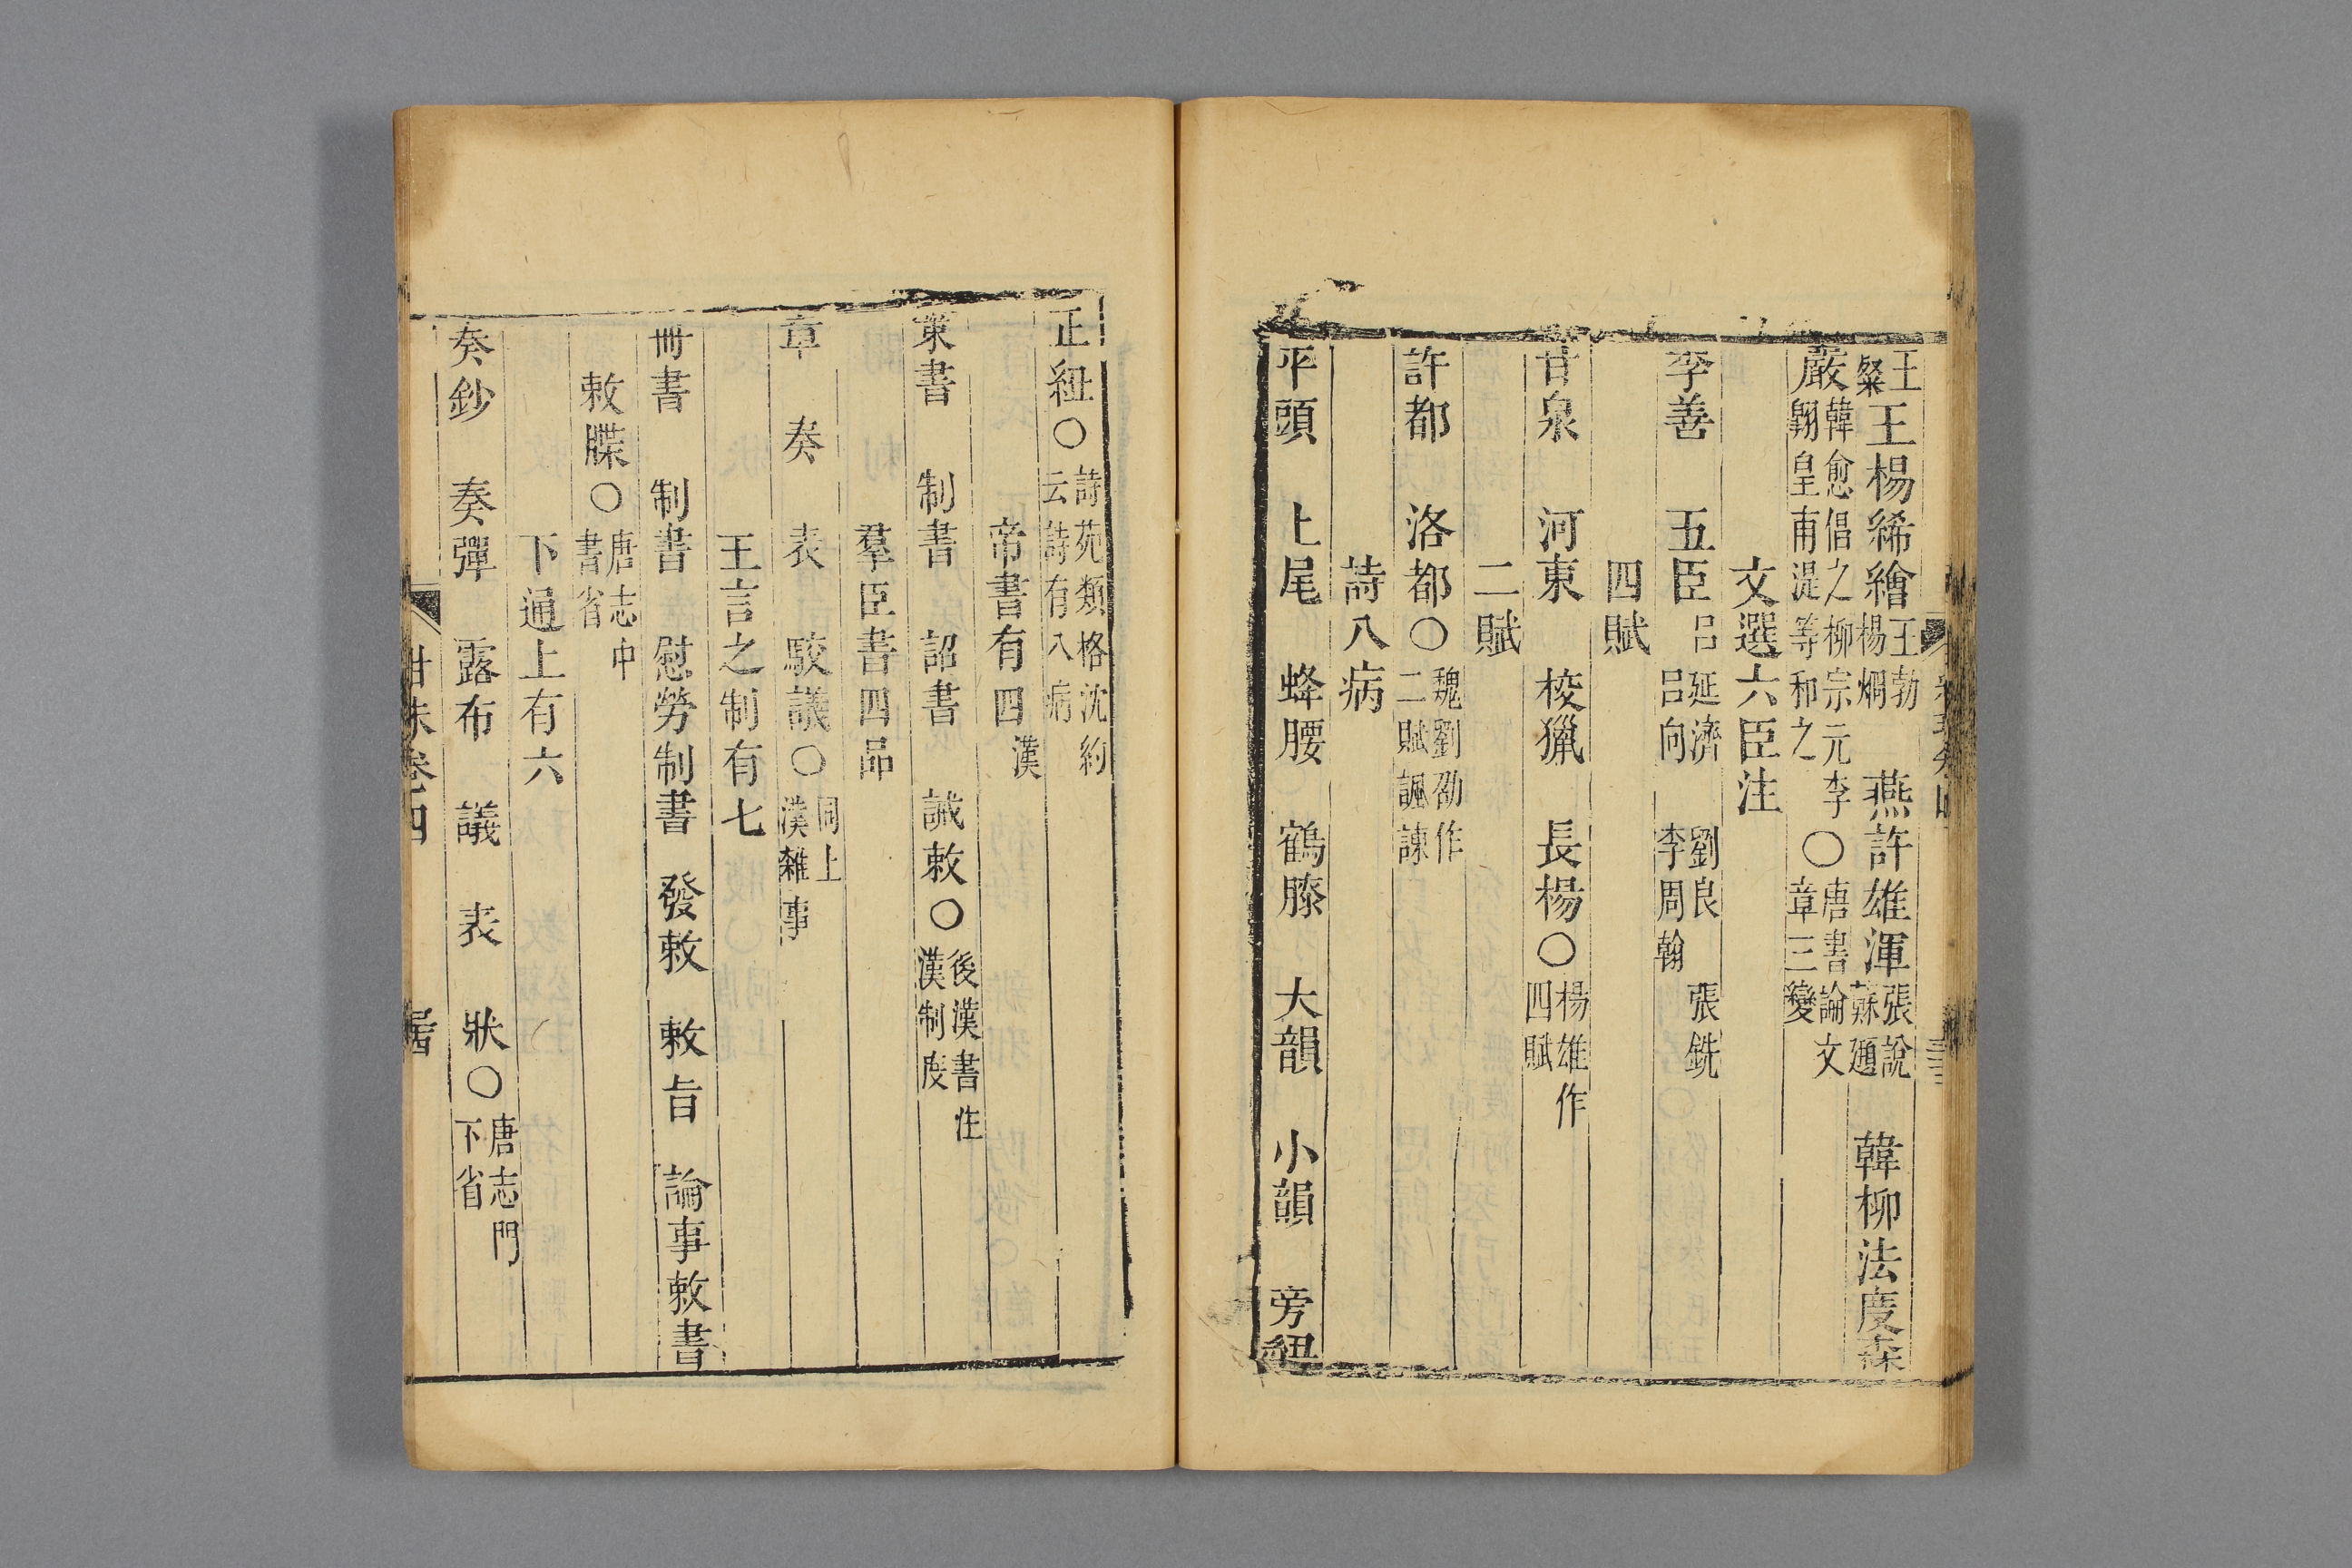 王粲王楊絺繪王勃楊炯 燕許雄渾張說蘇頲 韓柳法度森
嚴韓愈倡之柳宗元李翺皇甫湜等和之○唐書論文章三變
文選六臣注
李善 五臣呂延濟呂向 劉良李周翰 張銑
四賦
甘泉 河東 梭獵 長楊○楊雄作四賦
二賦
許都 洛都○魏劉劭作二賦諷諫
詩八病
平頭 上尾 蜂腰 鶴膝 大韻 小韻 旁紐
正紐○詩苑類格沈約云詩有八病
帝書有四漢
策書 制書 詔書 誡敕○後漢書注漢制度
羣臣書四品
章 奏 表 駮議○同上漢雜事
王言之制有七
冊書 制書 慰勞制書 發敕 敕旨 論事敕書
敕牒○唐志中書省
下通上有六
奏鈔 奏彈 露布 議 表 狀○唐志門下省
卷四